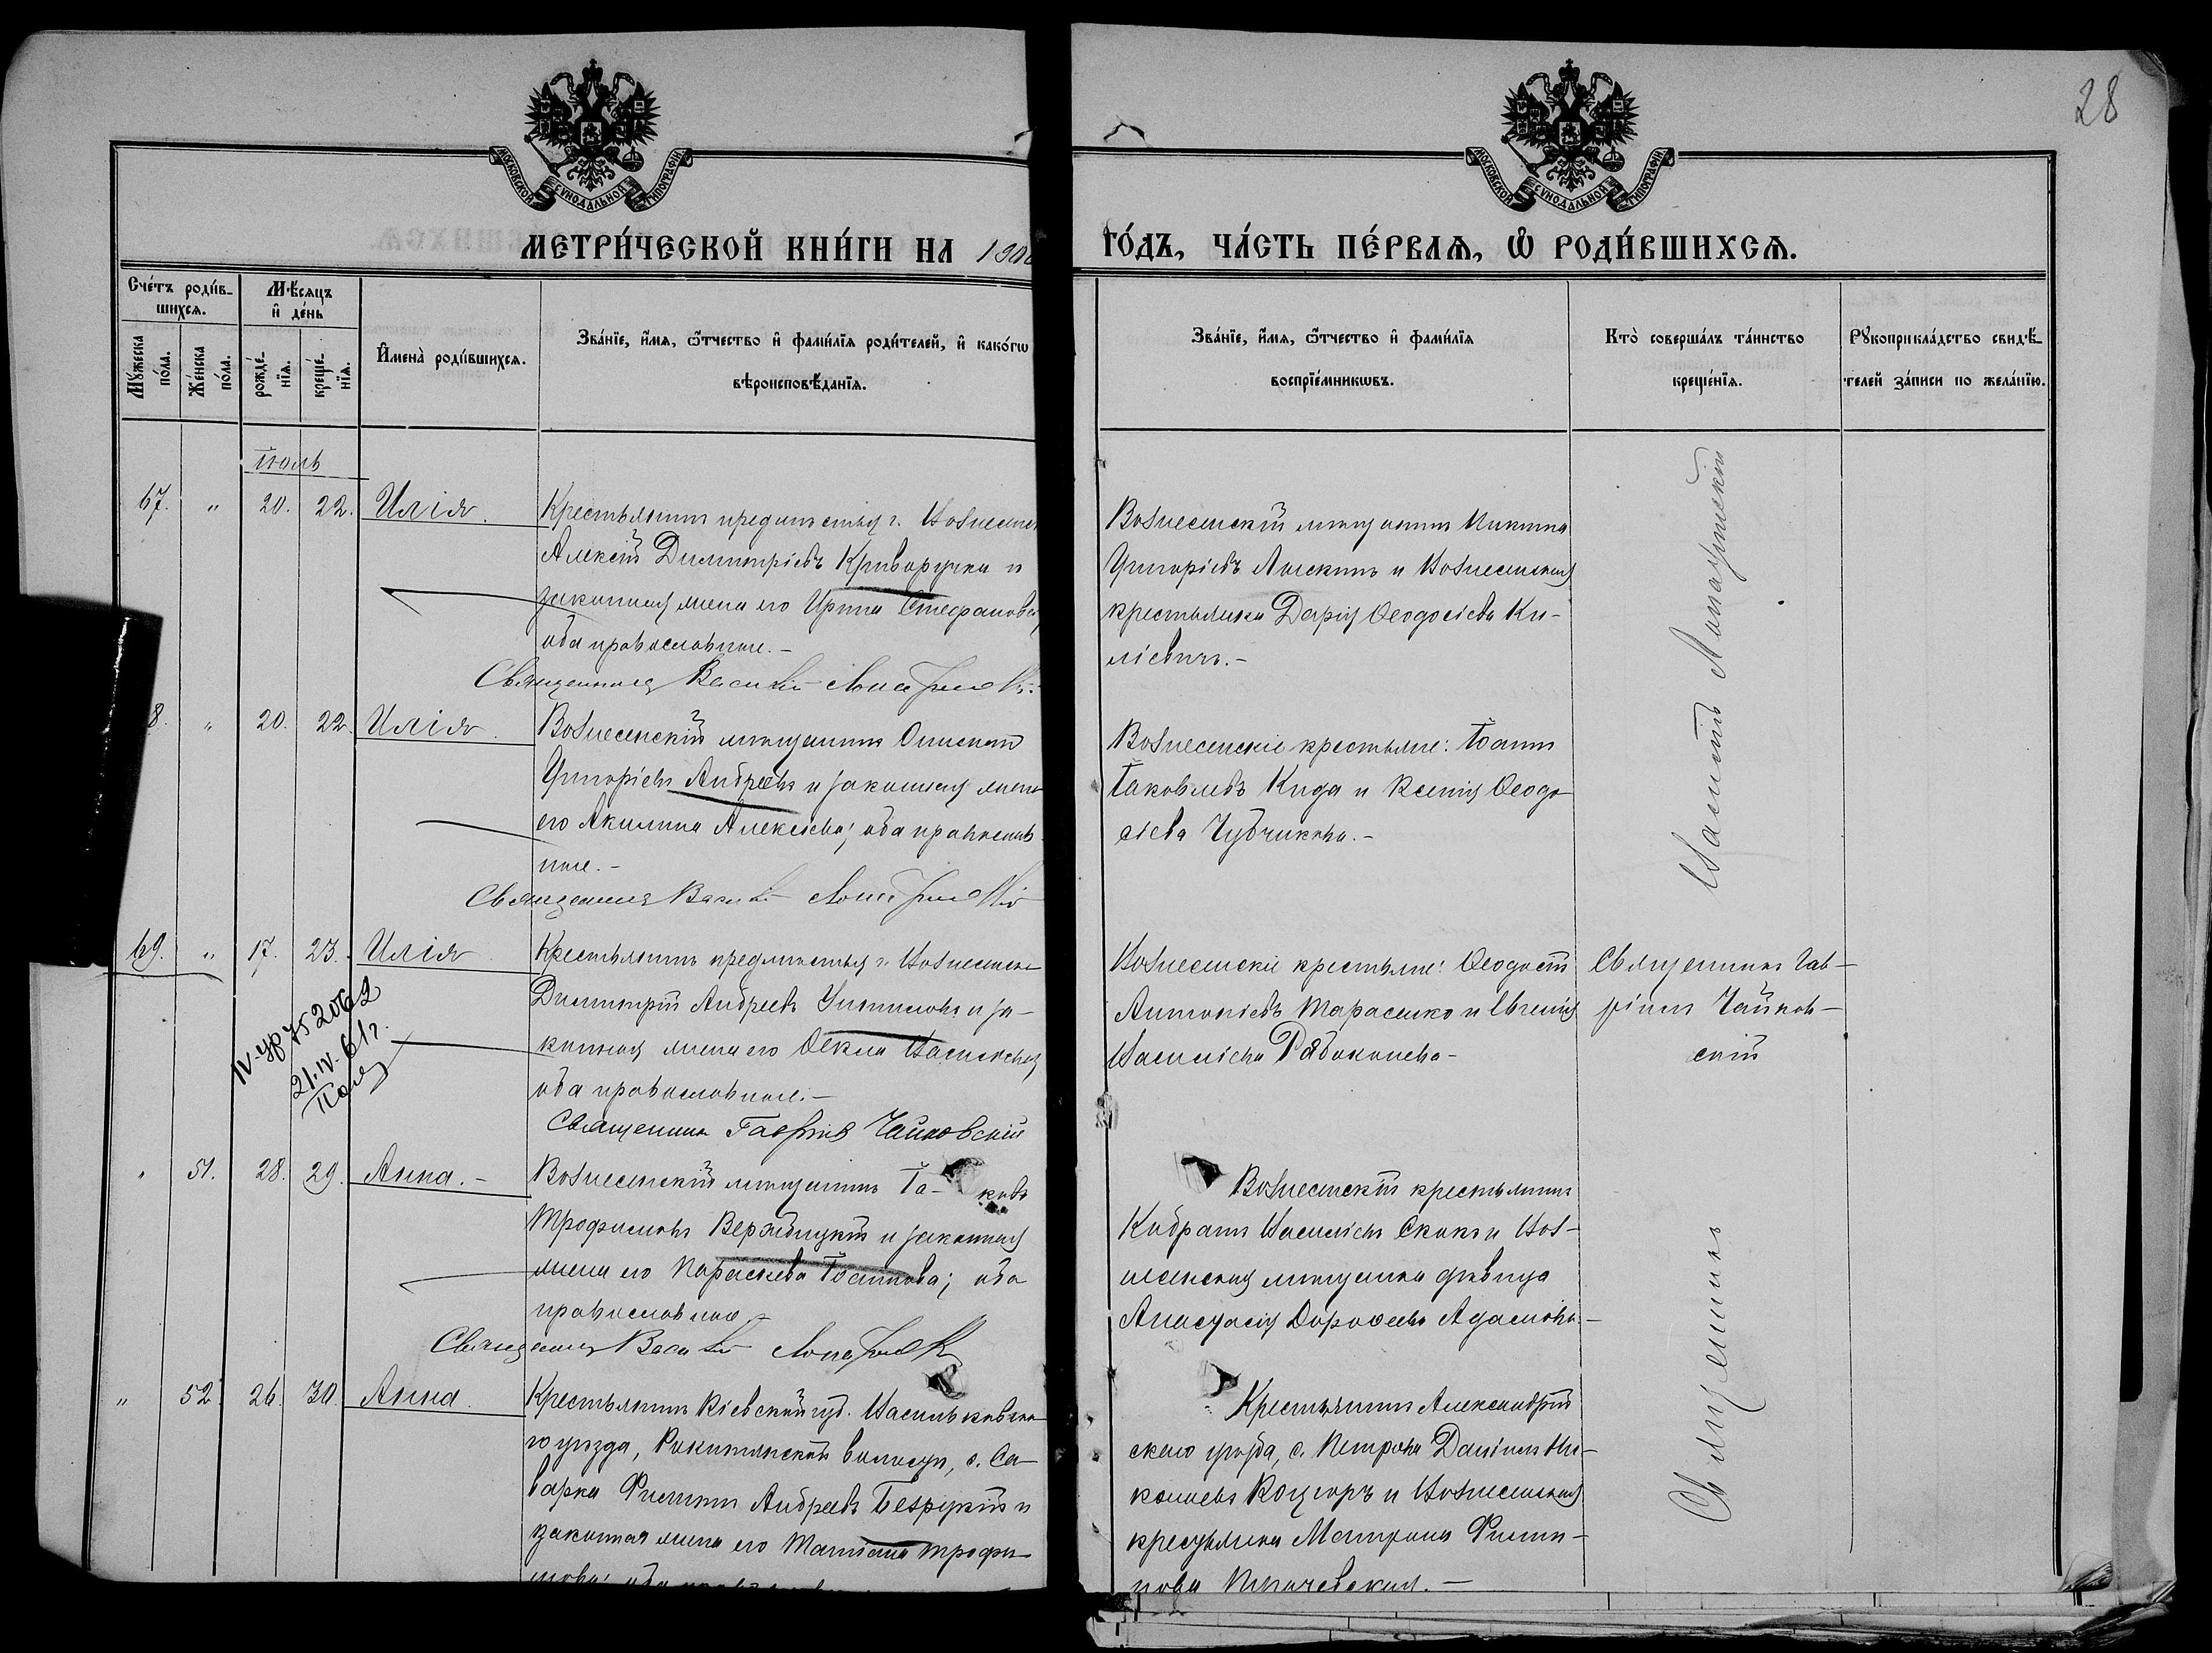 28
МОСКОВСКОЙ СѴНОДАЛЬНОЙ ТИПОГРАФІИ
МОСКОВСКОЙ СѴНОДАЛЬНОЙ ТИПОГРАФІИ
МЕТРИ́ЧЕСКОЙ КНИ́ГИ НА 190
ГО́ДЪ, ЧА́СТЬ ПЕ́РВАѦ, Ѽ РОДИ́ВШИХСѦ.
Сче́тъ роди́в-
шихсѧ.
Мѣ́сяцъ
и҆ де́нь
Мꙋ́жеска
по́ла.
Же́нска
по́ла.
рожде́-
нїѧ.
креще́-
нїѧ.
И҆мена̀ роди́вшихсѧ.
Зва́нїе, и҆́мѧ, ѻ҆́тчество и҆ фами́лїѧ роди́телей, и҆ како́гѡ
вѣроисповѣ́данїѧ.
Зва́нїе, и҆́мѧ, ѻ҆́тчество и҆ фами́лїѧ
воспрїе́мникѡвъ.
Кто̀ соверша́лъ та́инство
креще́нїѧ.
Рꙋкоприкла́дство свидѣ́-
телей за́писи по жела́нїю.
Іюль
67. " 20. 22. Илія.
Крестьянинъ предмѣстья г. Вознесен
Алексій Димитріевъ Криворучка и
законная жена его Ирина Стефанова,
оба православные.-
Священникъ Василій Лопатинскій
Вознесенскій мѣщанинъ Никита
Григоріевъ Лыскинъ и Вознесенская
крестьянка Дарія Ѳеодосіева Ки-
ліевичъ.-
8. " 20. 22. Илія.
Вознесенскій мѣщанинъ
Григоріевъ Андреевъ и законная жена
его Акилина Алексіева; оба православ-
ные.-
Священникъ Василій Лопатинскій
Вознесенскіе крестьяне: Іоаннъ
Іаковлевъ Кида и Ксенія Ѳеодо-
сіева Чубчикова.-
Василій Лопатинскій
69. " 17. 23. Илія
Крестьянинъ предмѣстья г. Вознесенска
Димитрій Андреевъ и за-
конная жена его Ѳекла Василіева,
оба православные.-
Священникъ Гавріилъ Чайковскій
Вознесенскіе крестьяне: Ѳеодосій
Антоніевъ Тарасенко и Евгенія
Василіева Рябоконева-
Священникъ Гав-
ріилъ Чайков-
скій
IV-УР 752062
21.IV.61г.
" 51. 28. 29. Анна.-
Вознесенскій мѣщанинъ Іа- ковъ
Трофимовъ Верхбицкій и законная
жена его Параскева Іоаннова; оба
православные.-
Священникъ Василій Лопатинск
Вознесенскій крестьянинъ
Кодратъ Василіевъ Скокъ и Воз-
несенская мѣщанка дѣвица
Анастасія Дороѳеева Адамова.-
" 52. 26. 30. Анна.
Крестьянинъ Кіевской губ. Васильковска-
го уѣзда, Рокитянской волости, с. Са-
варка Филиппъ Андреевъ Безрукій и
законная жена его Татіана Трофи-
мова;
Крестьянинъ Александрій
скаго уѣзда, с. Петрова Даніилъ Ни-
колаевъ Коцюръ и Вознесенская
крестьянка Матрона Филип-
пова Ткачевская.-
Священникъ